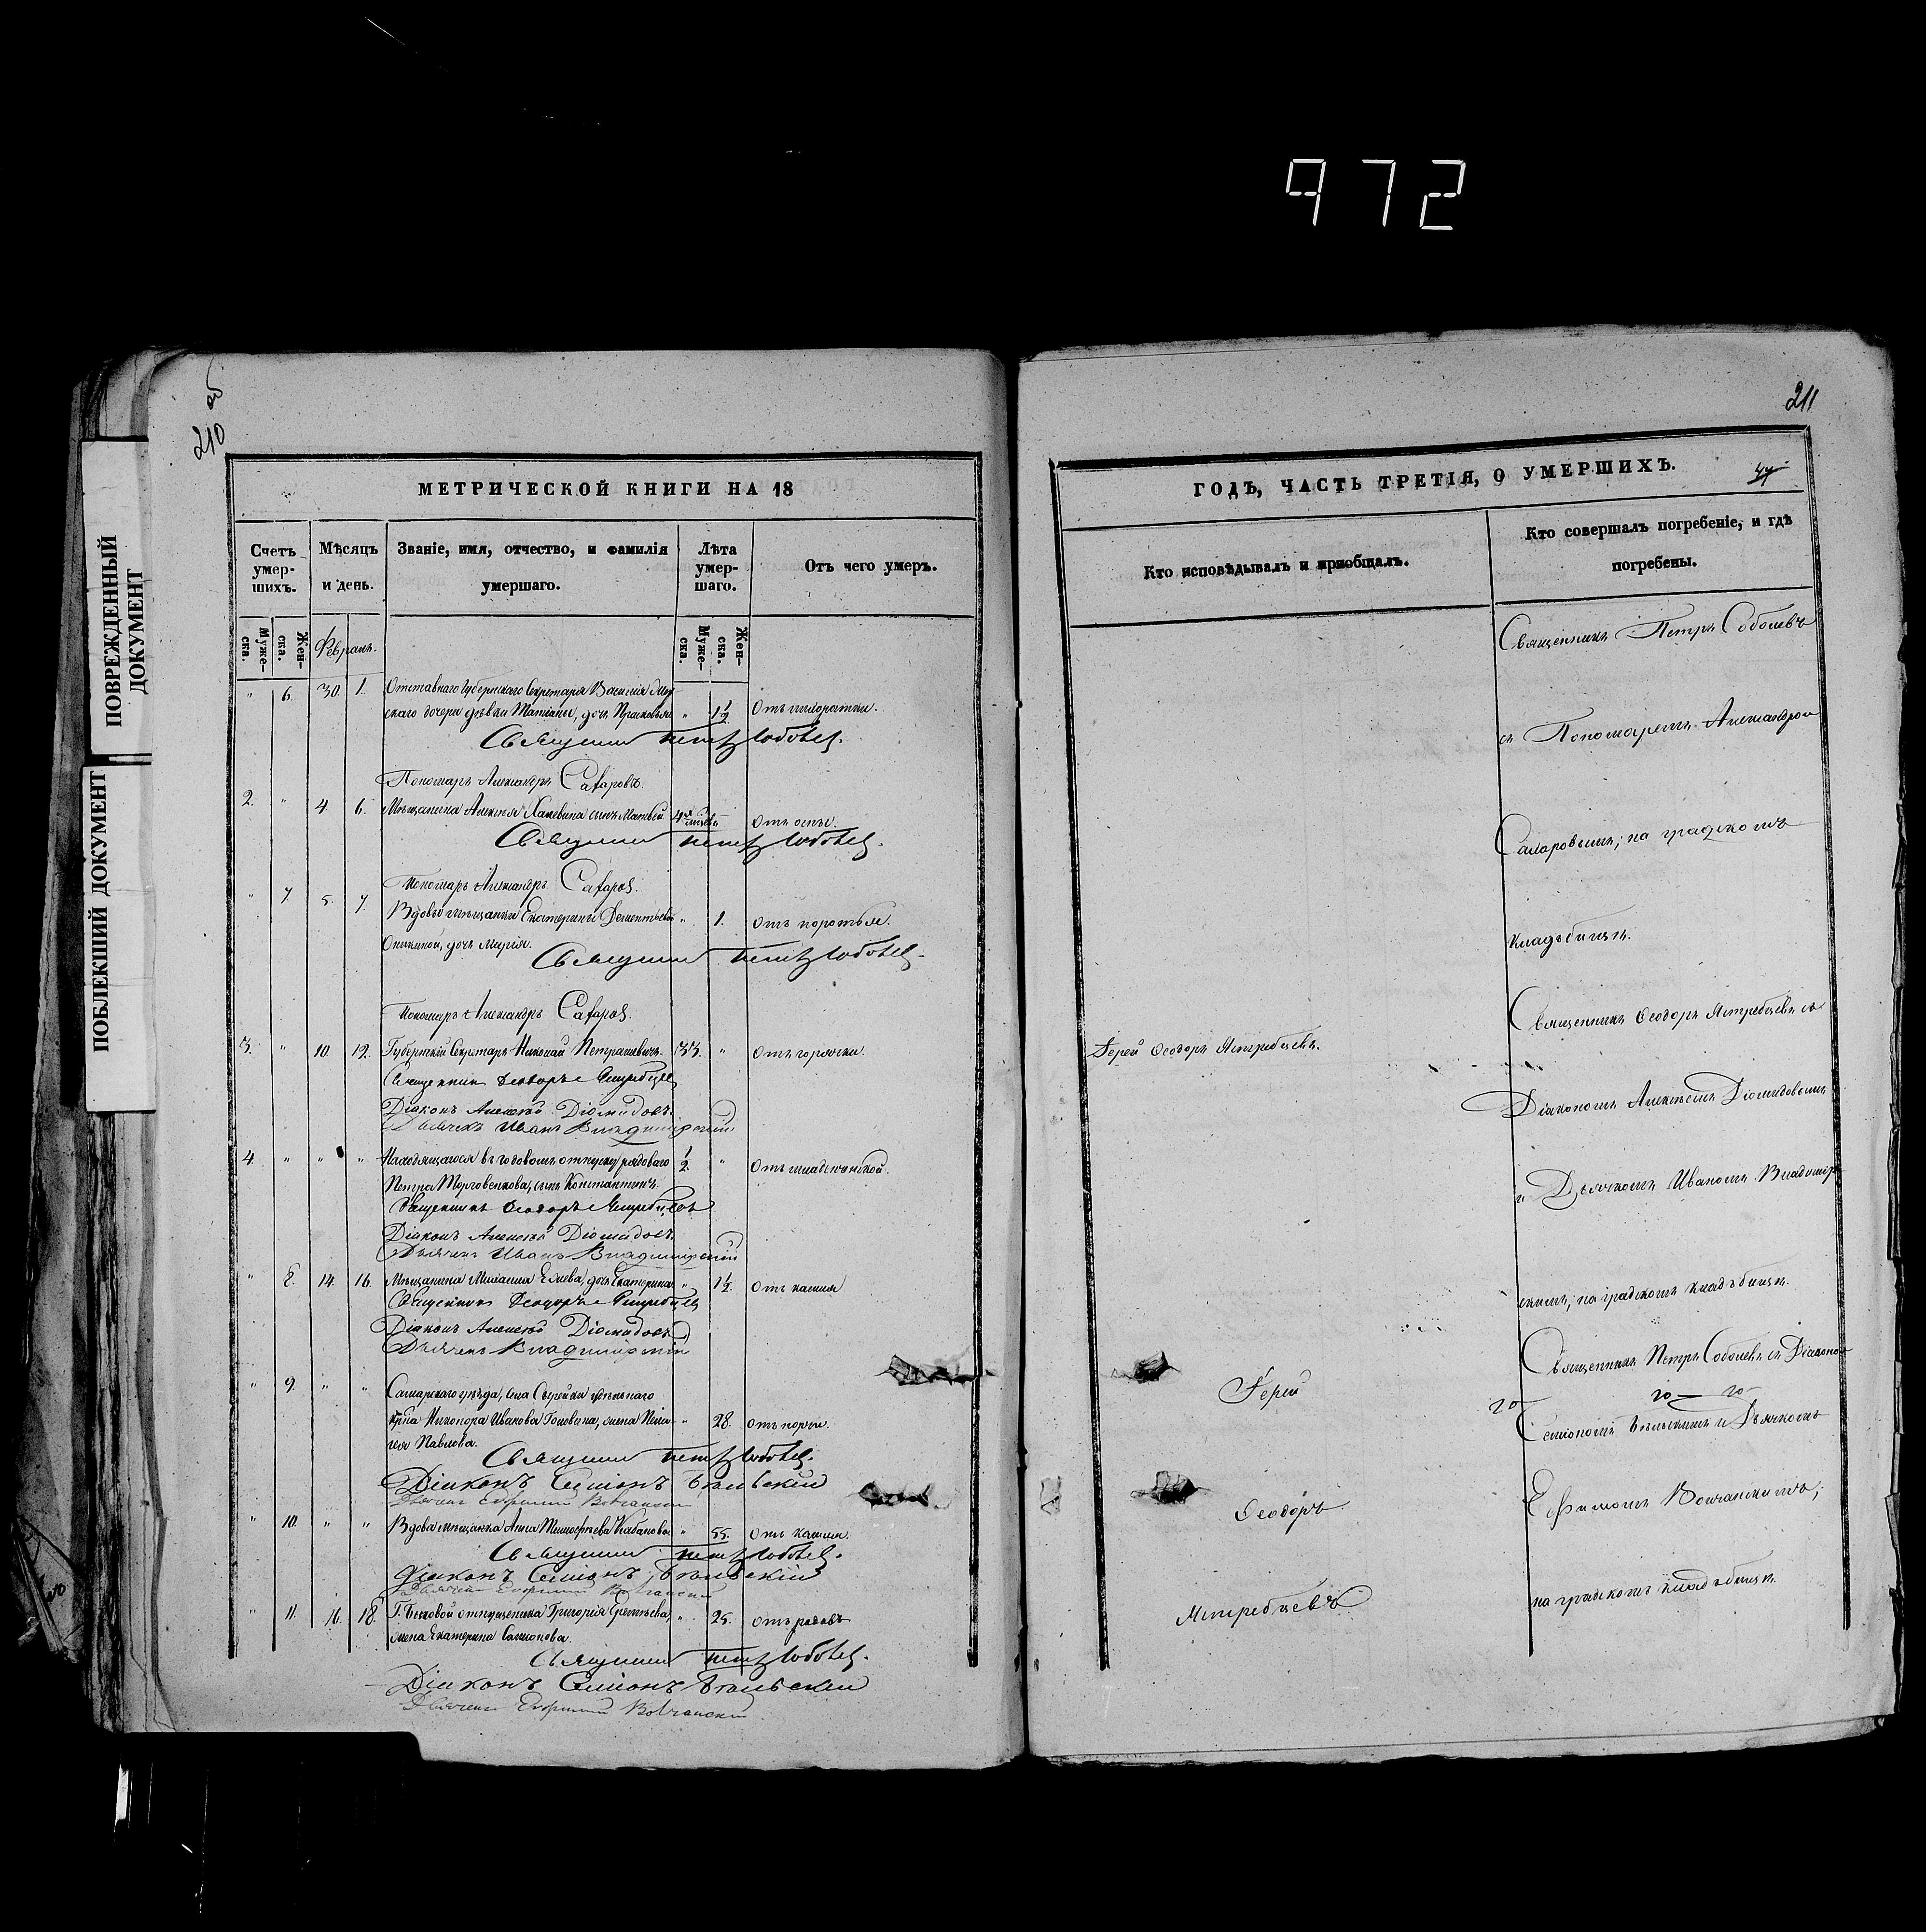 972
ПОВРЕЖДЕННЫЙ
ДОКУМЕНТ
ПОБЛЕКШИЙ ДОКУМЕНТ
210 об
МЕТРИЧЕСКОЙ КНИГИ НА 18
Счетъ умер-шихъ.
Мѣсяцъ и день.
Званіе, имя, отчество, и фамилія умершаго.
Лѣта умер-шаго.
Отъ чего умеръ.
Муже-ска.
Жен-ска.
Февраль.
Муже-ска.
Жен-ска.
" 6. 30. 1. Отставнаго Губернскаго Секретаря Василія
скаго дочери дѣвки Татіаны, дочь Прасковья " 1 1/2
Священникъ Петръ Соболевъ.
Пономарь Александръ Сахаровъ.
2. " 4. 6. Мѣщанина Алексѣя сынъ Матвей 4 Отъ оспы.
Священникъ Петръ Соболевъ.
Пономарь Александръ Сахаровъ.
" 7. 5. 7. Вдовы мѣщанки Екатерины Дементьевой " 1. Отъ
Оникиной, дочь Марія.
Священникъ Петръ Соболевъ.
Пономарь Александръ Сахаровъ.
3. " 10. 12. Губернскій Секретарь Николай Петрашевичъ. 33. " Отъ горячки.
Священникъ Ѳеодоръ Ястребцевъ
Діаконъ Алексѣй Діомидовъ.
Дьячекъ Иванъ Владимірскій
4. " " " Находящагося въ годовомъ отпуску рядоваго 1/2 " Отъ младенческой.
Петра Торговенкова, сынъ Константинъ.
Священникъ Ѳеодоръ Ястребцевъ
Діаконъ Алексѣй Діомидовъ.
Дьячекъ Иванъ Владимірскій
" 8. 14. 16. Мѣщанина дочь Екатерина " 1 1/2. Отъ кашля
Священникъ Ѳеодоръ Ястребцевъ
Діаконъ Алексѣй Діомидовъ
Дьячекъ Владимірскій
" 9. " " Самарскаго уѣзда, села удѣльнаго
кр-на Никонора Иванова Головина, жена Пела- " 28. Отъ порчи.
гея Павлова.
Священникъ Петръ Соболевъ.
Діаконъ Симіонъ Бѣльскій
Дьячекъ Ефимій Волчанскій
" 10. " " Вдова мѣщанка Анна Тимофѣева Кабанова. " 55. Отъ кашля.
Священникъ Петръ Соболевъ.
Діаконъ Симіонъ Бѣльскій
Дьячекъ Ефимій Волчанскій
" 11. 16. 18. Г. Быковой отпущеника Григорія " 25. Отъ родовъ
жена Екатерина
Священникъ Петръ Соболевъ.
Діаконъ Симіонъ Бѣльскій
Дьячекъ Ефимій Волчанскій
211
ГОДЪ, ЧАСТЬ ТРЕТІЯ, О УМЕРШИХЪ.
Кто исповѣдывалъ и приобщалъ.
Кто совершалъ погребеніе, и гдѣ погребены.
Священникъ Петръ Соболевъ
съ Пономаремъ Александромъ
Сахаровымъ; на градскомъ
кладъбищѣ.
Іерей Ѳеодоръ Ястребцевъ.
Священникъ Ѳеодоръ Ястребцевъ съ
Діакономъ Алексѣемъ Діомидовымъ
и Дьячкомъ Иваномъ Владимір
скимъ; на градскомъ кладъбищѣ.
Іерей
Ѳеодоръ
Ястребцевъ
Священникъ Петръ Соболевъ съ Діакономъ
Симіономъ Бѣльскимъ и Дьячкомъ
Ефимомъ Волчанскимъ;
на градскомъ кладъбищѣ.